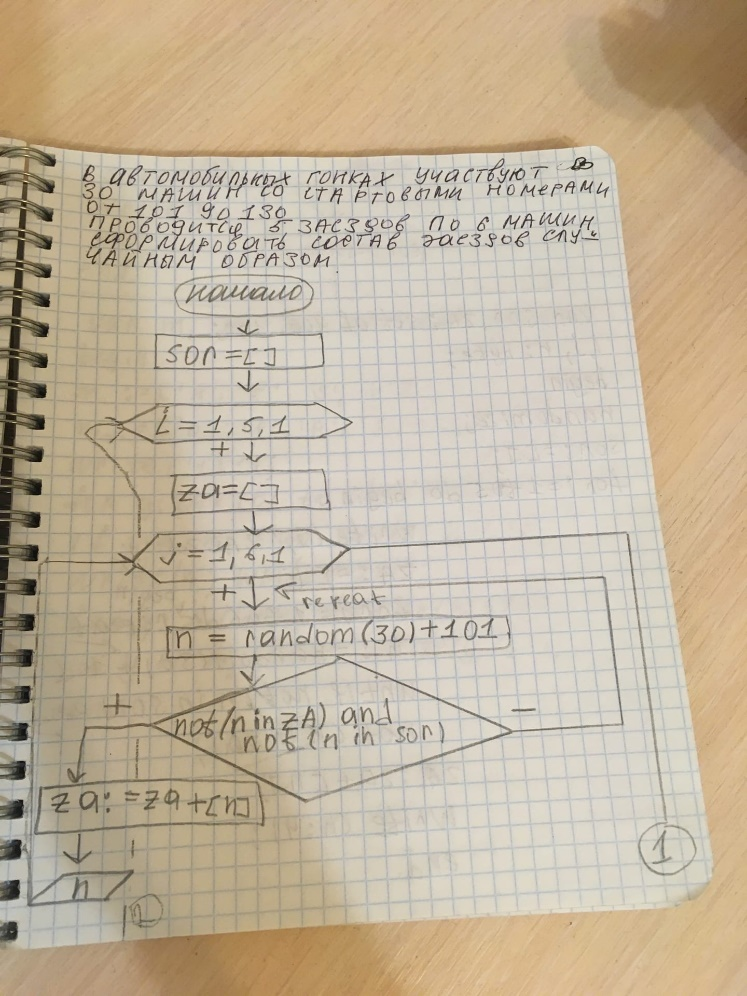 В АВТОМОБИЛЬНЫХ ГОНКАХ УЧАСТВУЮТ
30 МАШИН СО СТАРТОВЫМИ НОМЕРАМИ
ОТ 101 ДО 130
ПРОВОДИТСЯ 5 ЗАЕЗДОВ ПО 6 МАШИН
СФОРМИРОВАТЬ СОСТАВ ЗАЕЗДОВ СЛУ-
ЧАЙНЫМ ОБРАЗОМ.
начало
son=[]
i=1,5,1
+
za=[]
j=1,6,1
+
repeat
n = random(30)+101
+
not(n in zA) and
not (n in son)
-
za:=za+[n]
1
n